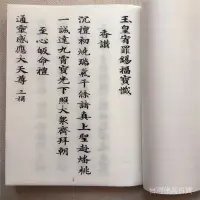 玉皇宥罪錫福寶懺
香讚
沉檀初燒瑞氣千條諸真上聖赴蟠桃
一誠達九霄寶光下照大眾齊拜朝
至心皈命禮
通靈感應大天尊 三稱